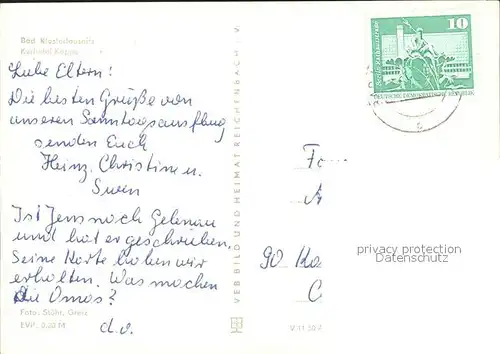 Bad Klosterlausnitz
Kurhotel Köppe
Liebe Eltern!
Die besten Grüße von
unserem Sonntagsausflug
senden Euch
Heinz, Christine u.
Swen
Ist Jens nach Gelenau
und hat er geschrieben.
Seine Karte haben wir
erhalten. Was machen
die Omas?
d.o.
Foto: Stühr, Greiz
EVP: 0,20 M
VEB BILD UND HEIMAT REICHENBACH i. V.
V 11 50 A
10
DEUTSCHE DEMOKRATISCHE REPUBLIK
Fa
90 Ka
C
privacy protection
Datenschutz